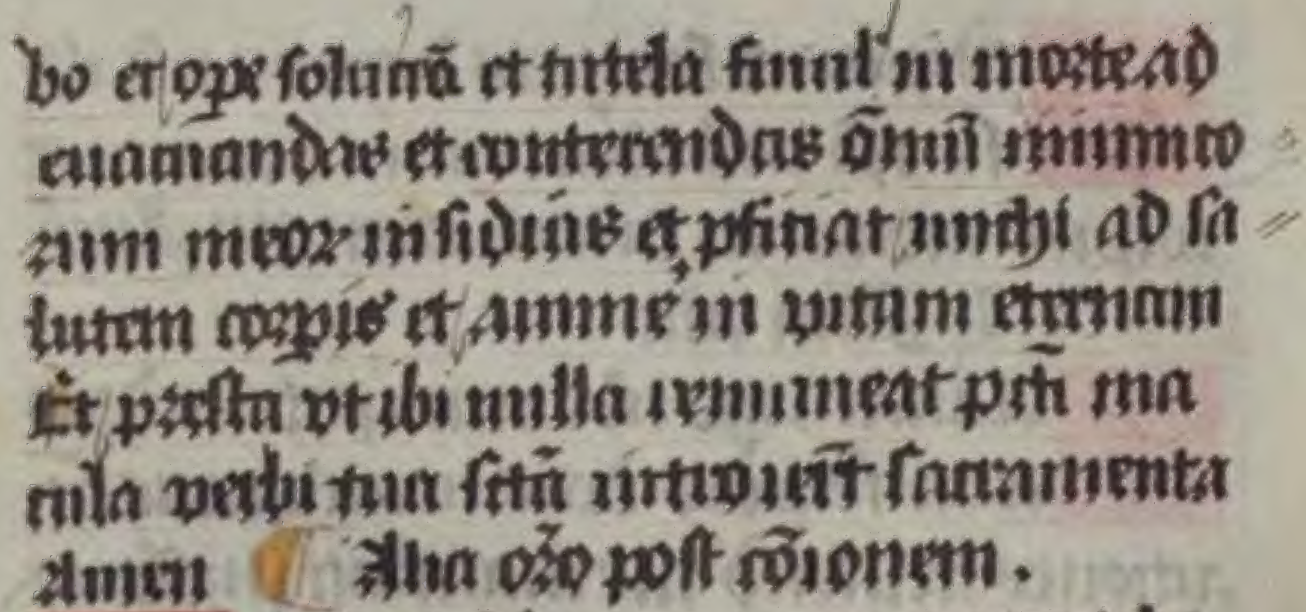 bo et ope solutiõ et tutela simul in morte ad
euacuandas et conterendas õmiũ inimico
rum meorꝝ insidias et ꝓficiat michi ad sa
lutem corpis et anime in vitam eternam
Et presta vt ibi nulla remaneat pcti̅ ma
cula vbi tua sctã introieri̅t sacramenta
Amen Alia or̃o post cõionem .